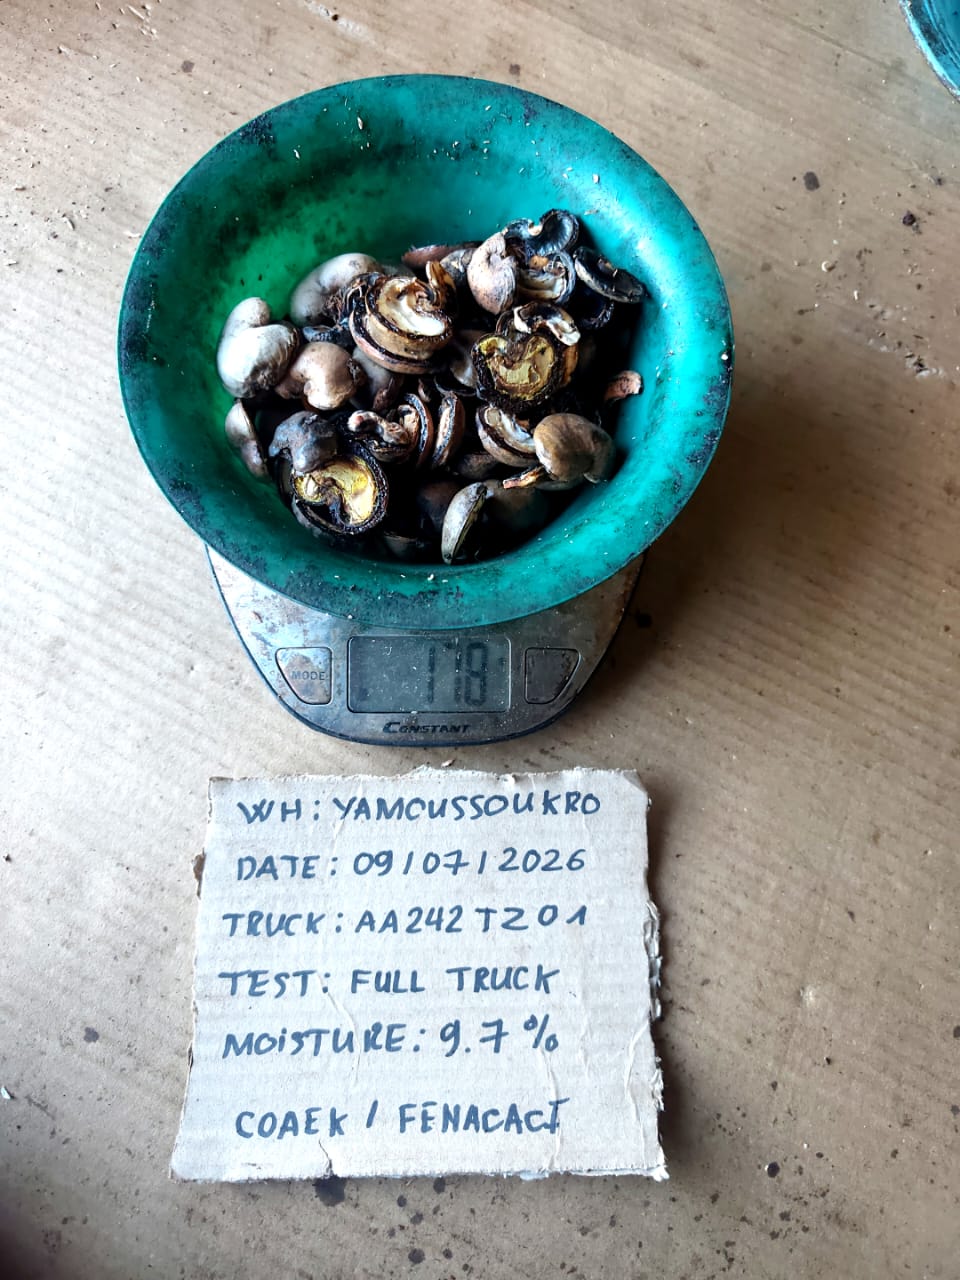 MODE
178
CONSTANT
WH: YAMOUSSOUKRO
DATE: 09/07/2026
TRUCK: AA242TZ01
TEST: FULL TRUCK
MOISTURE: 9.7%
COAEK / FENACACI